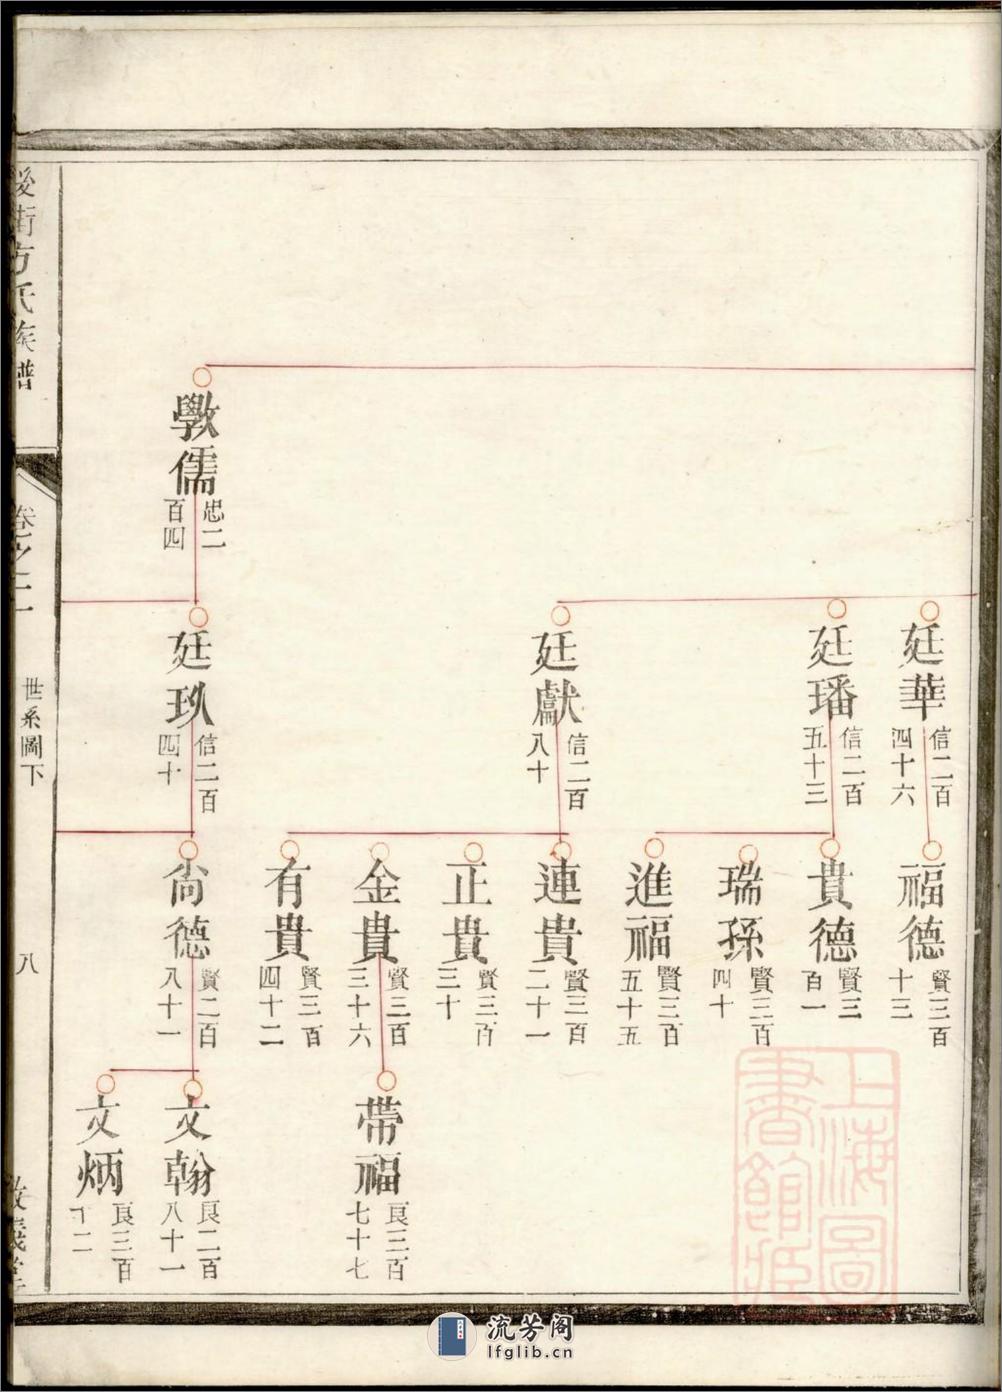 後街方氏族譜
卷之二
世系圖下
八
敦義堂
斅儒
忠二
百四
廷華
信二百
四十六
廷璠
信二百
五十三
廷獻
信二百
八十
廷玖
信二百
四十
福德
賢三百
十三
貴德
賢三
百一
瑞孫
賢三百
四十
進福
賢三百
五十五
連貴
賢三百
二十一
正貴
賢三百
三十
金貴
賢三百
三十六
有貴
賢三百
四十二
尙德
賢二百
八十一
帶福
良三百
七十七
文翰
良二百
八十一
文炳
良三百
十二
上海圖
書館藏
流芳阁
lfglib.cn